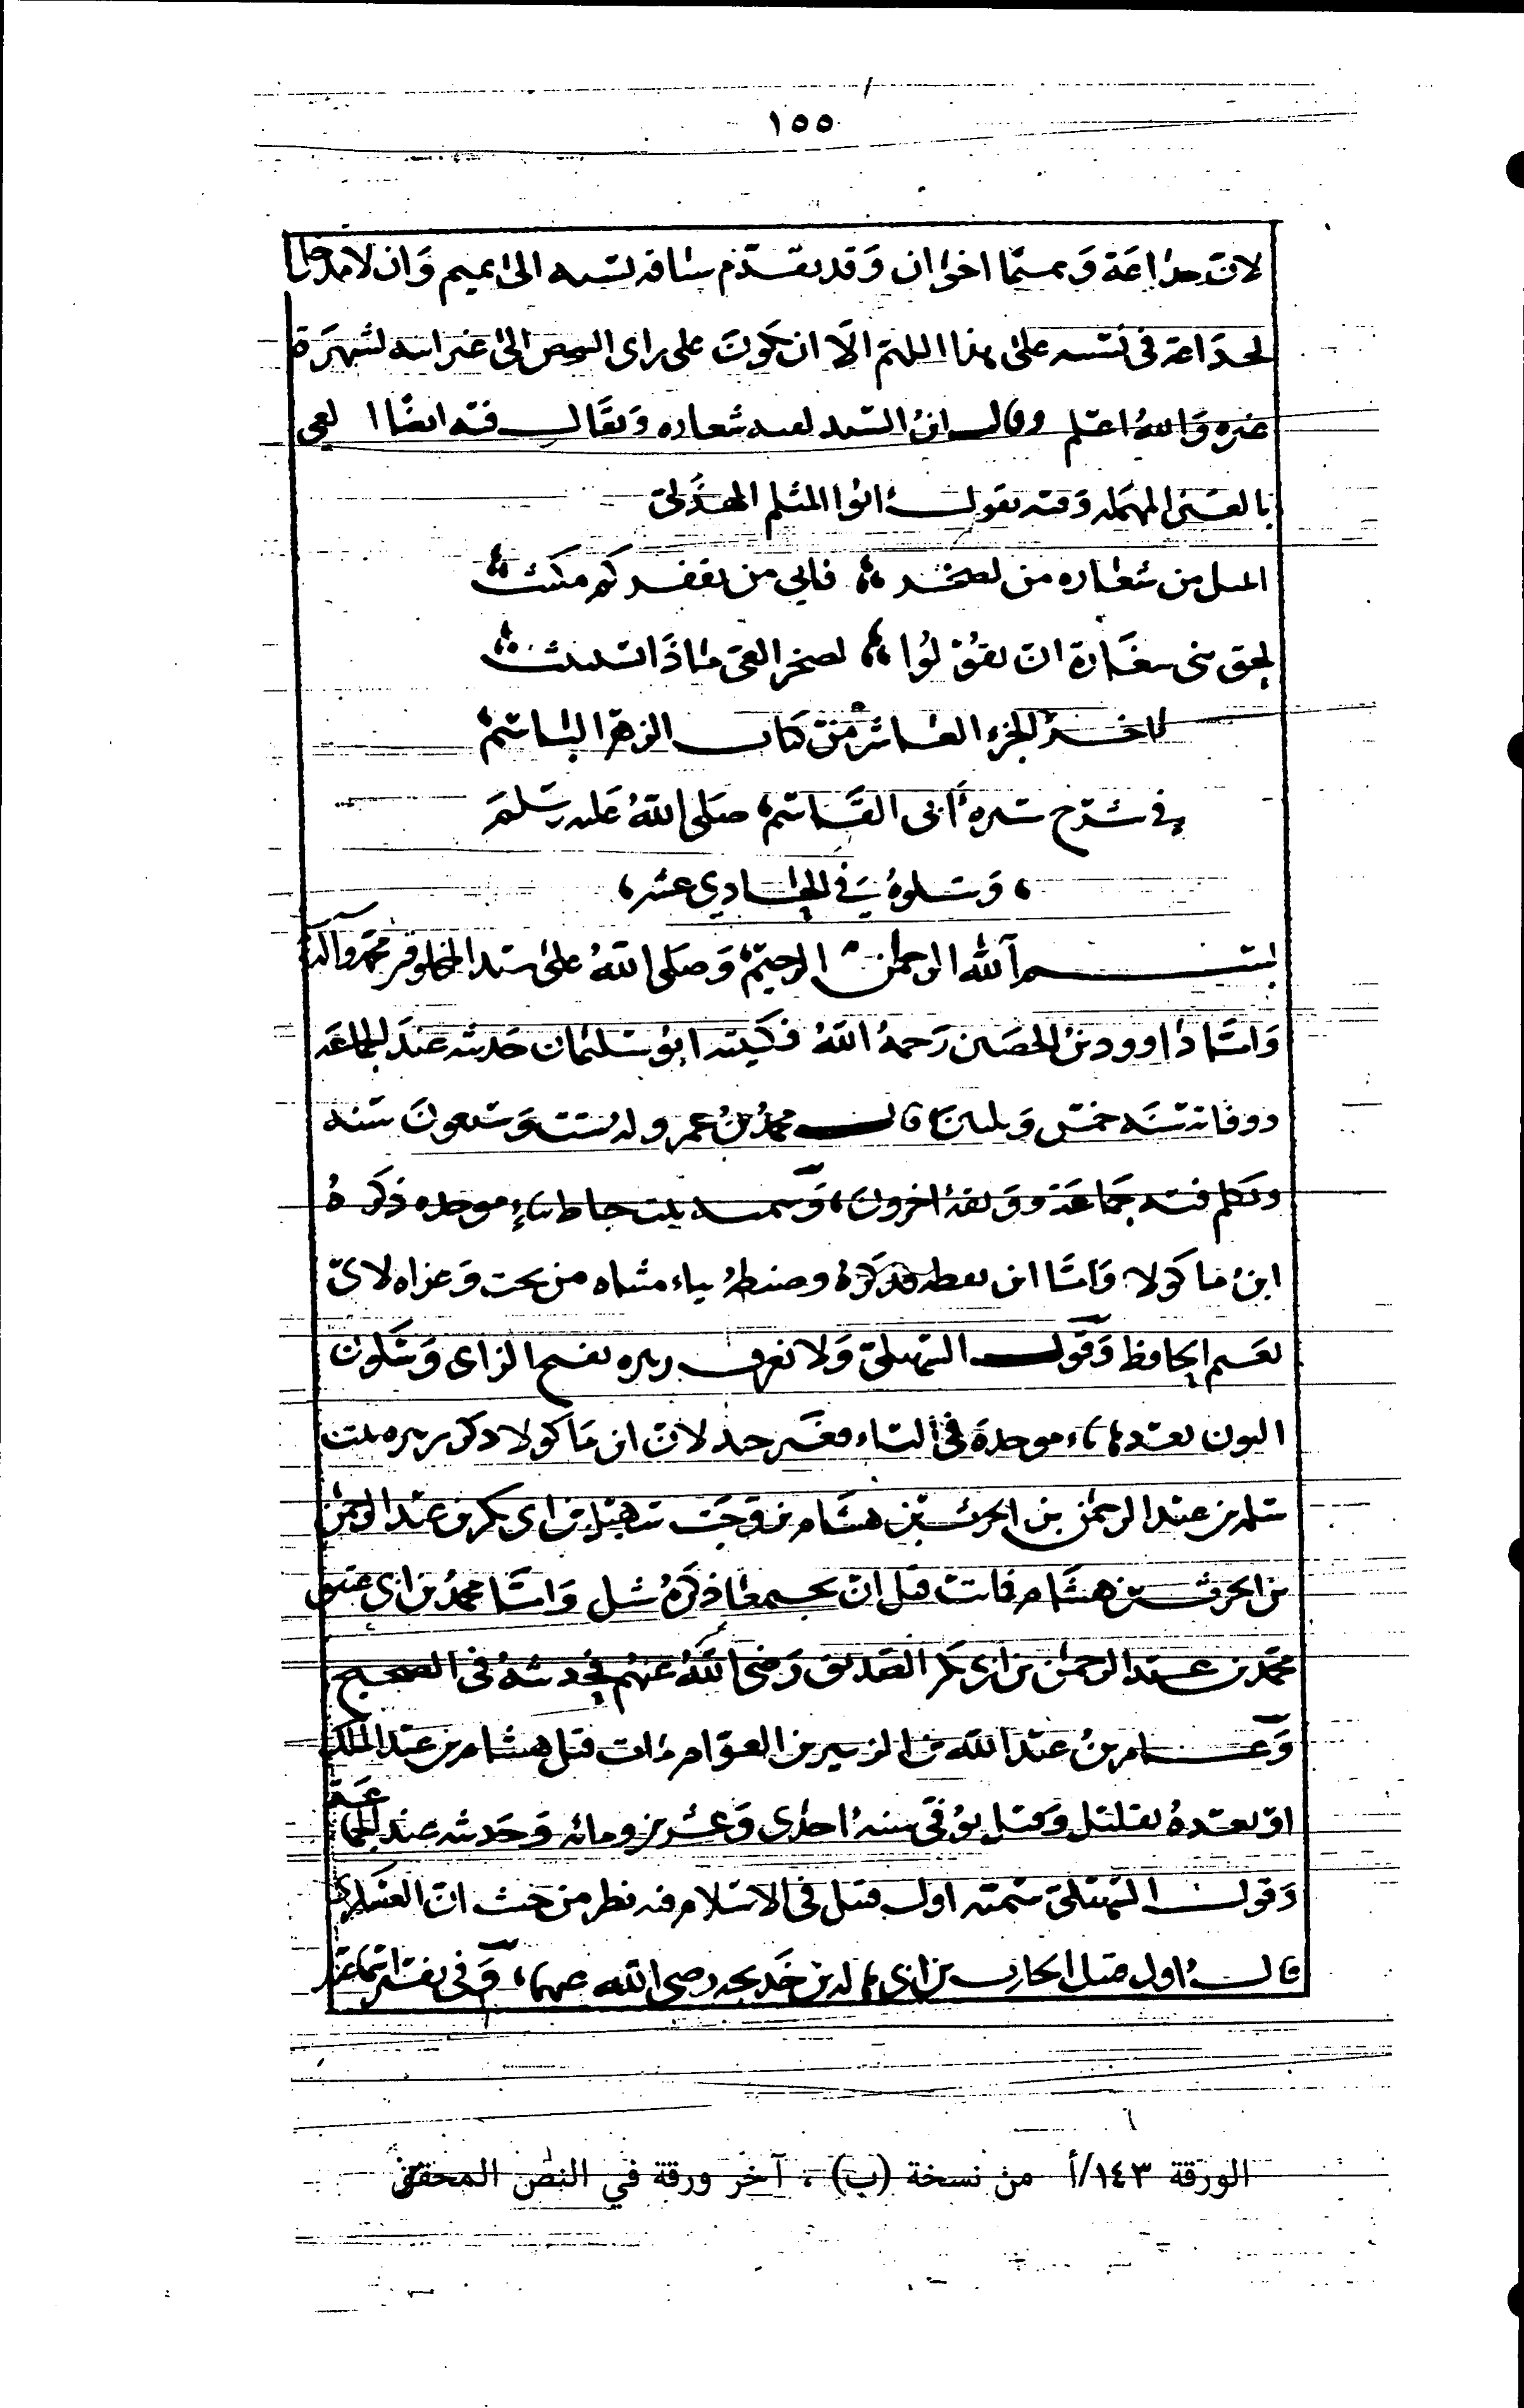 ١٥٥
لان جداعة وتميما اخوان وقد تقدم سياقه نسبه الى تميم وان لا مدخل
لجداعة في نسبه على هذا اللهم الا ان يكون على راى الشخص الى غير ابيه لشهرة
غيره والله اعلم وقال ابن السيد لعبد شعاره ويقال فيه ايضا الغي
بالغين المهمله وفيه يقول ابوا المثلم الهذلي
من شعاره من لصخر فاني من تقفركم مكيث
لحق بنى شغارة ان يقولوا لصخر الغي ماذا تستبيث
اخر الجزء العاشر من كتاب الزهر الباسم
في شرح سيرة أبي القاسم صلى الله عليه وسلم
وتتلوه في الحادي عشر
بسم الله الرحمن الرحيم وصلى الله على سيد المخلوقين محمد وآله
واما داوود بن الحصين رحمه الله فكنيته ابو سليمان حديثه عند الجماعه
ووفاته سنه خمس وثلاثين قال محمد بن عمر وله ست وسبعون سنه
وتكلم فيه جماعة ووثقه اخرون، وسمية بنت خباط بباء موحده ذكره
ابن ماكولا واما ابن نقطه فذكره وضبطه بياء مثناه من تحت وعزاه لابي
نعيم الحافظ وقول السهيلي ولا نعرف زنبره بفتح الزاى وسكون
النون بعدها باء موحدة في النساء فغير جيد لان ابن ماكولا ذكر زنبره بنت
سلمه بن عبد الرحمن بن الحرث بن هشام زوجت سهيل بن ابي بكر بن عبد الرحمن
بن الحرث بن هشام فماتت قبل ان يجمعها ذكره شبل واما محمد بن ابي عتيق
محمد بن عبد الرحمن بن ابي بكر الصديق رضي الله عنهم فحديثه في الصحيح
وعامر بن عبد الله بن الزبير بن العوام مات قبل هشام بن عبد الملك
او بعده بقليل وقيل توفي سنة احدى وعشرين ومائه وحديثه عند الجماعة
وقول السهيلي سميه اول قتيل في الاسلام فيه نظر من حيث ان العسكري
قال اول قتيل الحارث بن ابي هاله بن خديجه رضى الله عنهما، وفي تفسير
الورقة ١٤٣/أ من نسخة (ب) ، آخر ورقة في النص المحقق